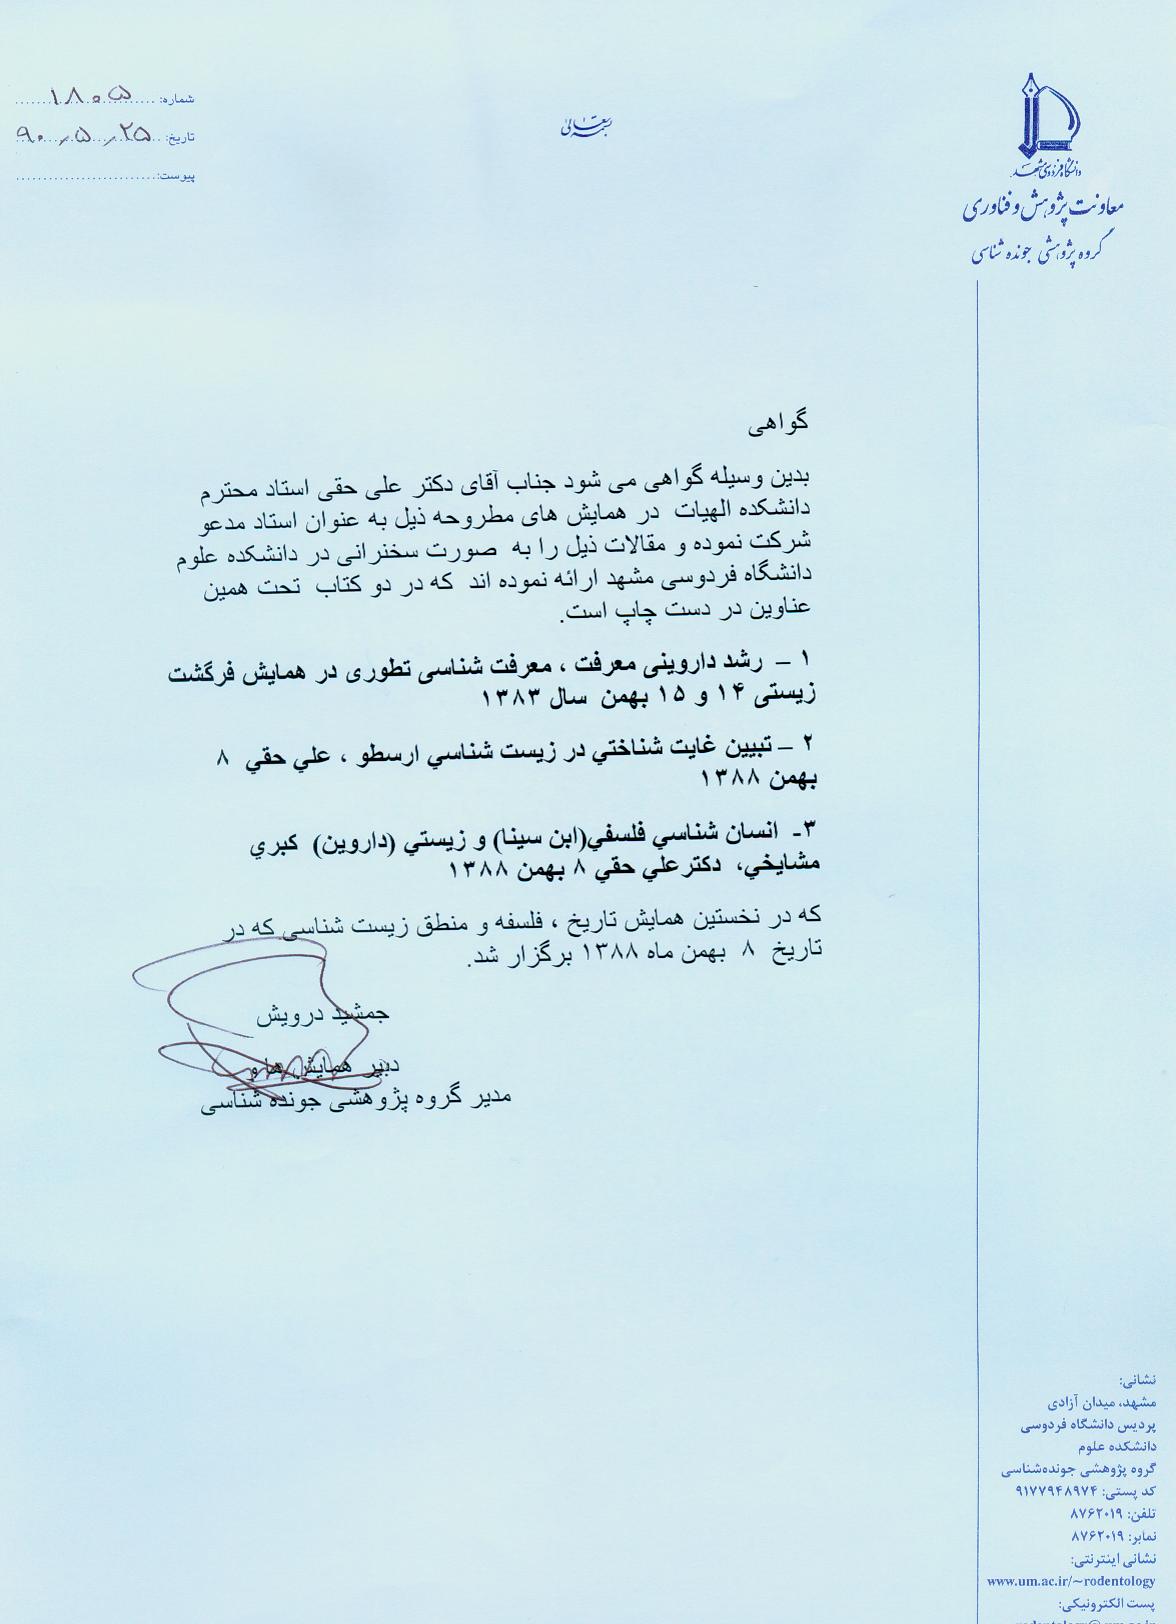 بسمه تعالی
دانشگاه فردوسی مشهد
معاونت پژوهش و فناوری
گروه پژوهشی جونده شناسی
شماره: ۱۸۰۵
تاریخ: ۹۰,۵,۲۵
پیوست:
گواهی
بدین وسیله گواهی می شود جناب آقای دکتر علی حقی استاد محترم
دانشکده الهیات در همایش های مطروحه ذیل به عنوان استاد مدعو
شرکت نموده و مقالات ذیل را به صورت سخنرانی در دانشکده علوم
دانشگاه فردوسی مشهد ارائه نموده اند که در دو کتاب تحت همین
عناوین در دست چاپ است.
۱ – رشد داروینی معرفت ، معرفت شناسی تطوری در همایش فرگشت
زیستی ۱۴ و ۱۵ بهمن سال ۱۳۸۳
۲ – تبيين غايت شناختي در زيست شناسي ارسطو ، علي حقي ۸
بهمن ۱۳۸۸
۳- انسان شناسي فلسفي(ابن سينا) و زيستي (داروين) كبري
مشايخي، دكترعلي حقي ۸ بهمن ۱۳۸۸
که در نخستین همایش تاریخ ، فلسفه و منطق زیست شناسی که در
تاریخ ۸ بهمن ماه ۱۳۸۸ برگزار شد.
جمشید درویش
دبیر همایش ها و
مدیر گروه پژوهشی جونده شناسی
نشانی:
مشهد، میدان آزادی
پردیس دانشگاه فردوسی
دانشکده علوم
گروه پژوهشی جونده‌شناسی
کد پستی: ۹۱۷۷۹۴۸۹۷۴
تلفن: ۸۷۶۲۰۱۹
نمابر: ۸۷۶۲۰۱۹
نشانی اینترنتی:
www.um.ac.ir/~rodentology
پست الکترونیکی: